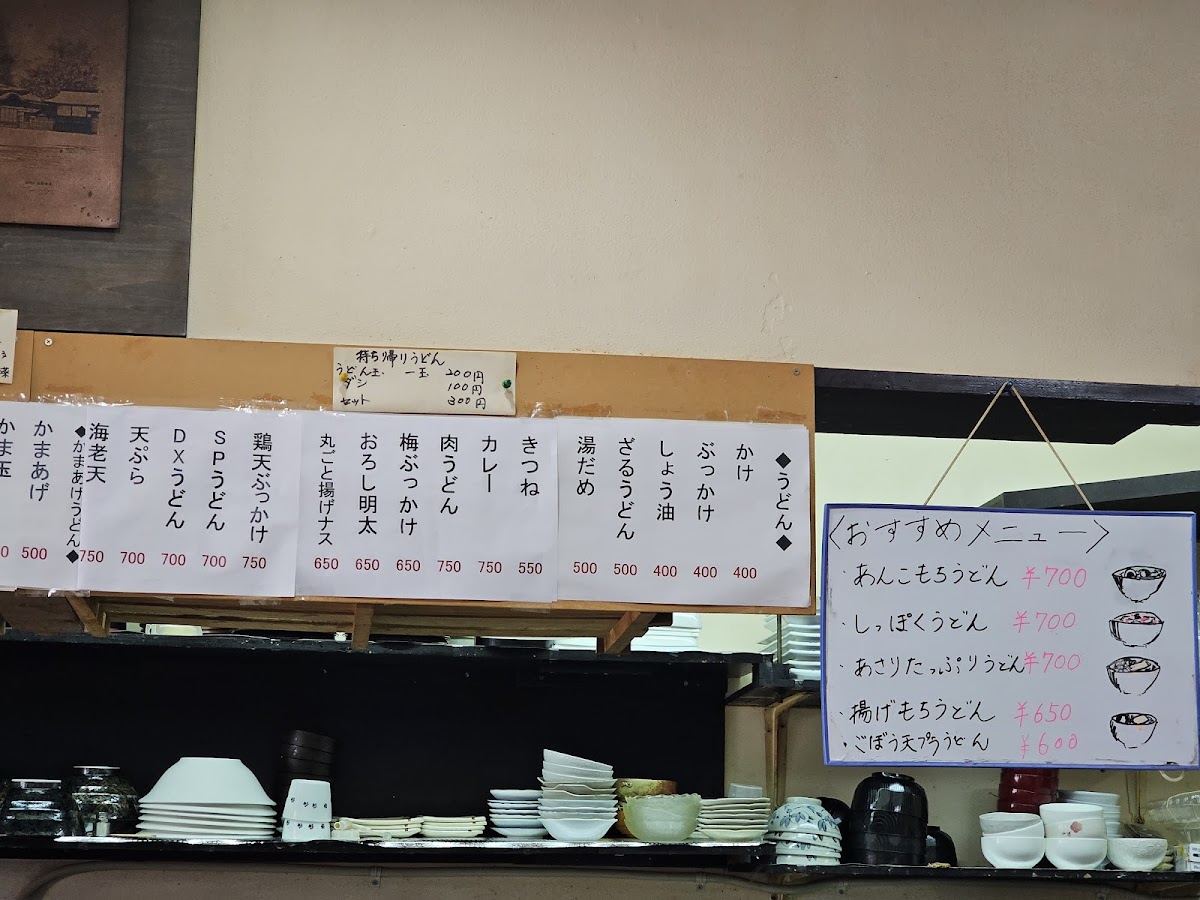 持ち帰りうどん
うどん玉 一玉 200円
ダシ 100円
セット 300円
◆うどん◆
かけ 400
ぶっかけ 400
しょう油 400
ざるうどん 500
湯だめ 500
きつね 550
カレー 750
肉うどん 750
梅ぶっかけ 650
おろし明太 650
丸ごと揚げナス 650
鶏天ぶっかけ 750
SPうどん 700
DXうどん 700
天ぷら 700
海老天 750
◆かまあげうどん◆
かまあげ 500
かま玉
<おすすめメニュー>
・あんこもちうどん ¥700
・しっぽくうどん ¥700
・あさりたっぷりうどん ¥700
・揚げもちうどん ¥650
・ごぼう天プラうどん ¥600